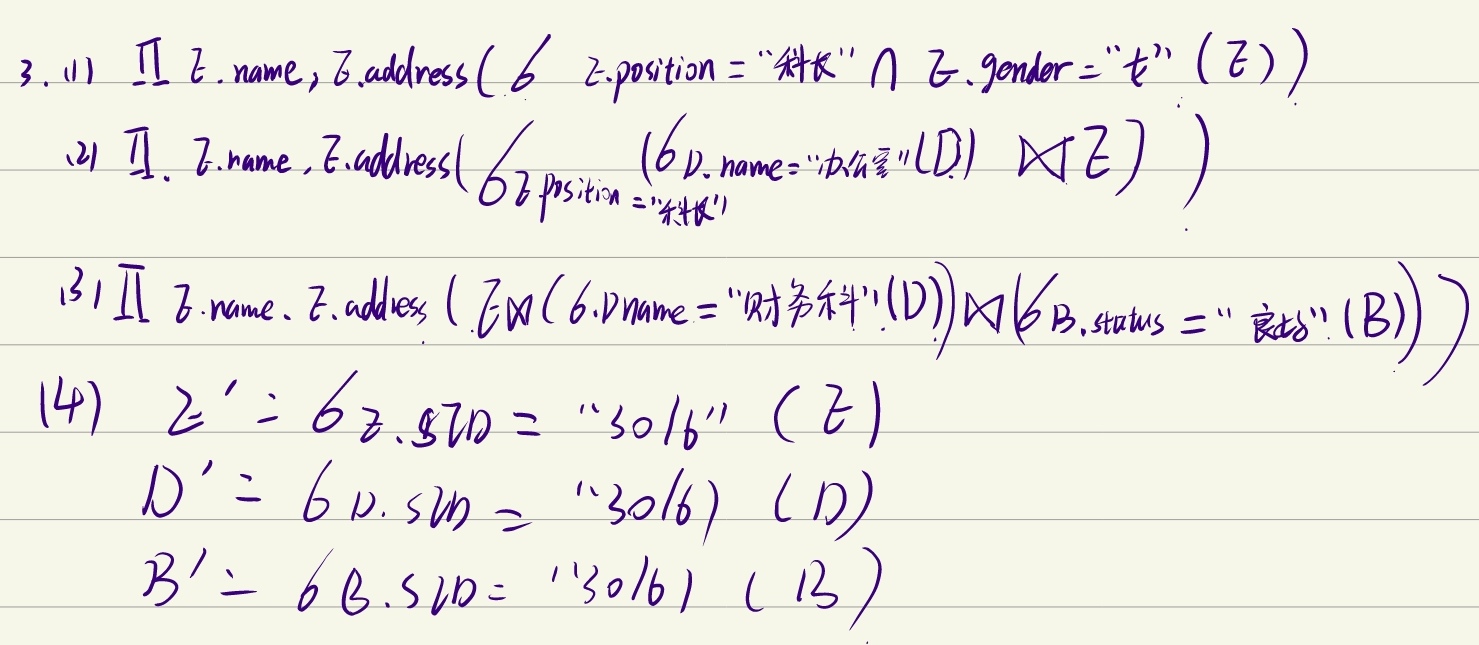 3. (1) Π E.name, E.address (σ E.position = "科长" ∩ E.gender = "女" (E))
(2) Π. E.name, E.address (σ E.position = "科长" (σ D.name = "办公室" (D) ⋈ E))
(3) Π E.name、E.address (E⋈(σ.Dname = "财务科" (D))⋈(σ B.status = "良好" (B)))
(4) E' = σ E.SID = "3016" (E)
D' = σ D.SID = "3016) (D)
B' = σ B.SID = "3016) (B)